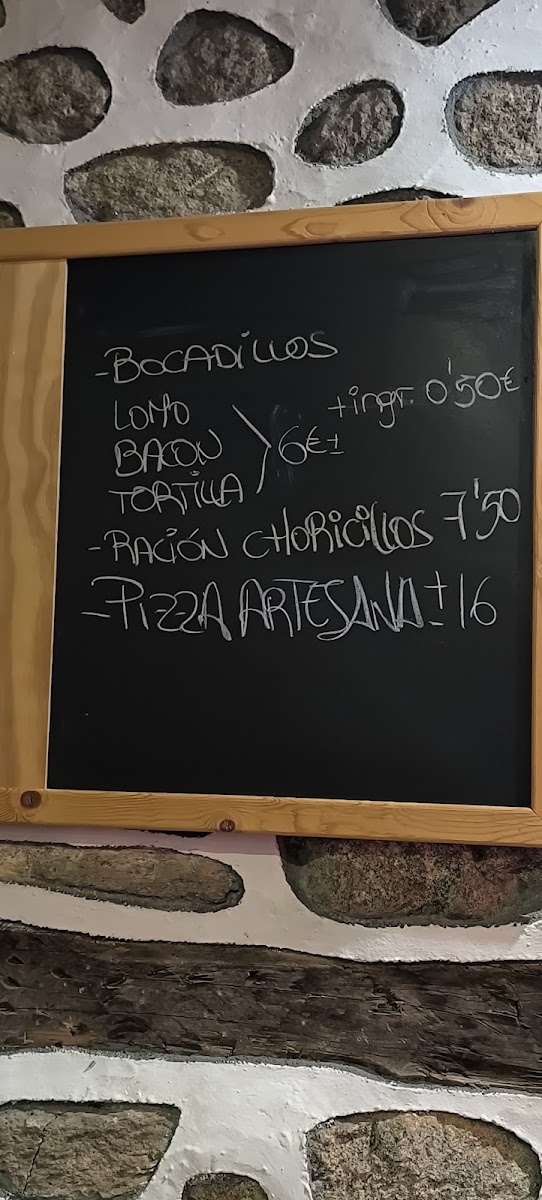 - BOCADILLOS
LOMO
+ingr. 0'50€
BACON
6€±
TORTILLA
- RACIÓN CHORICILLOS 7'50
- PIZZA ARTESANA ± 16